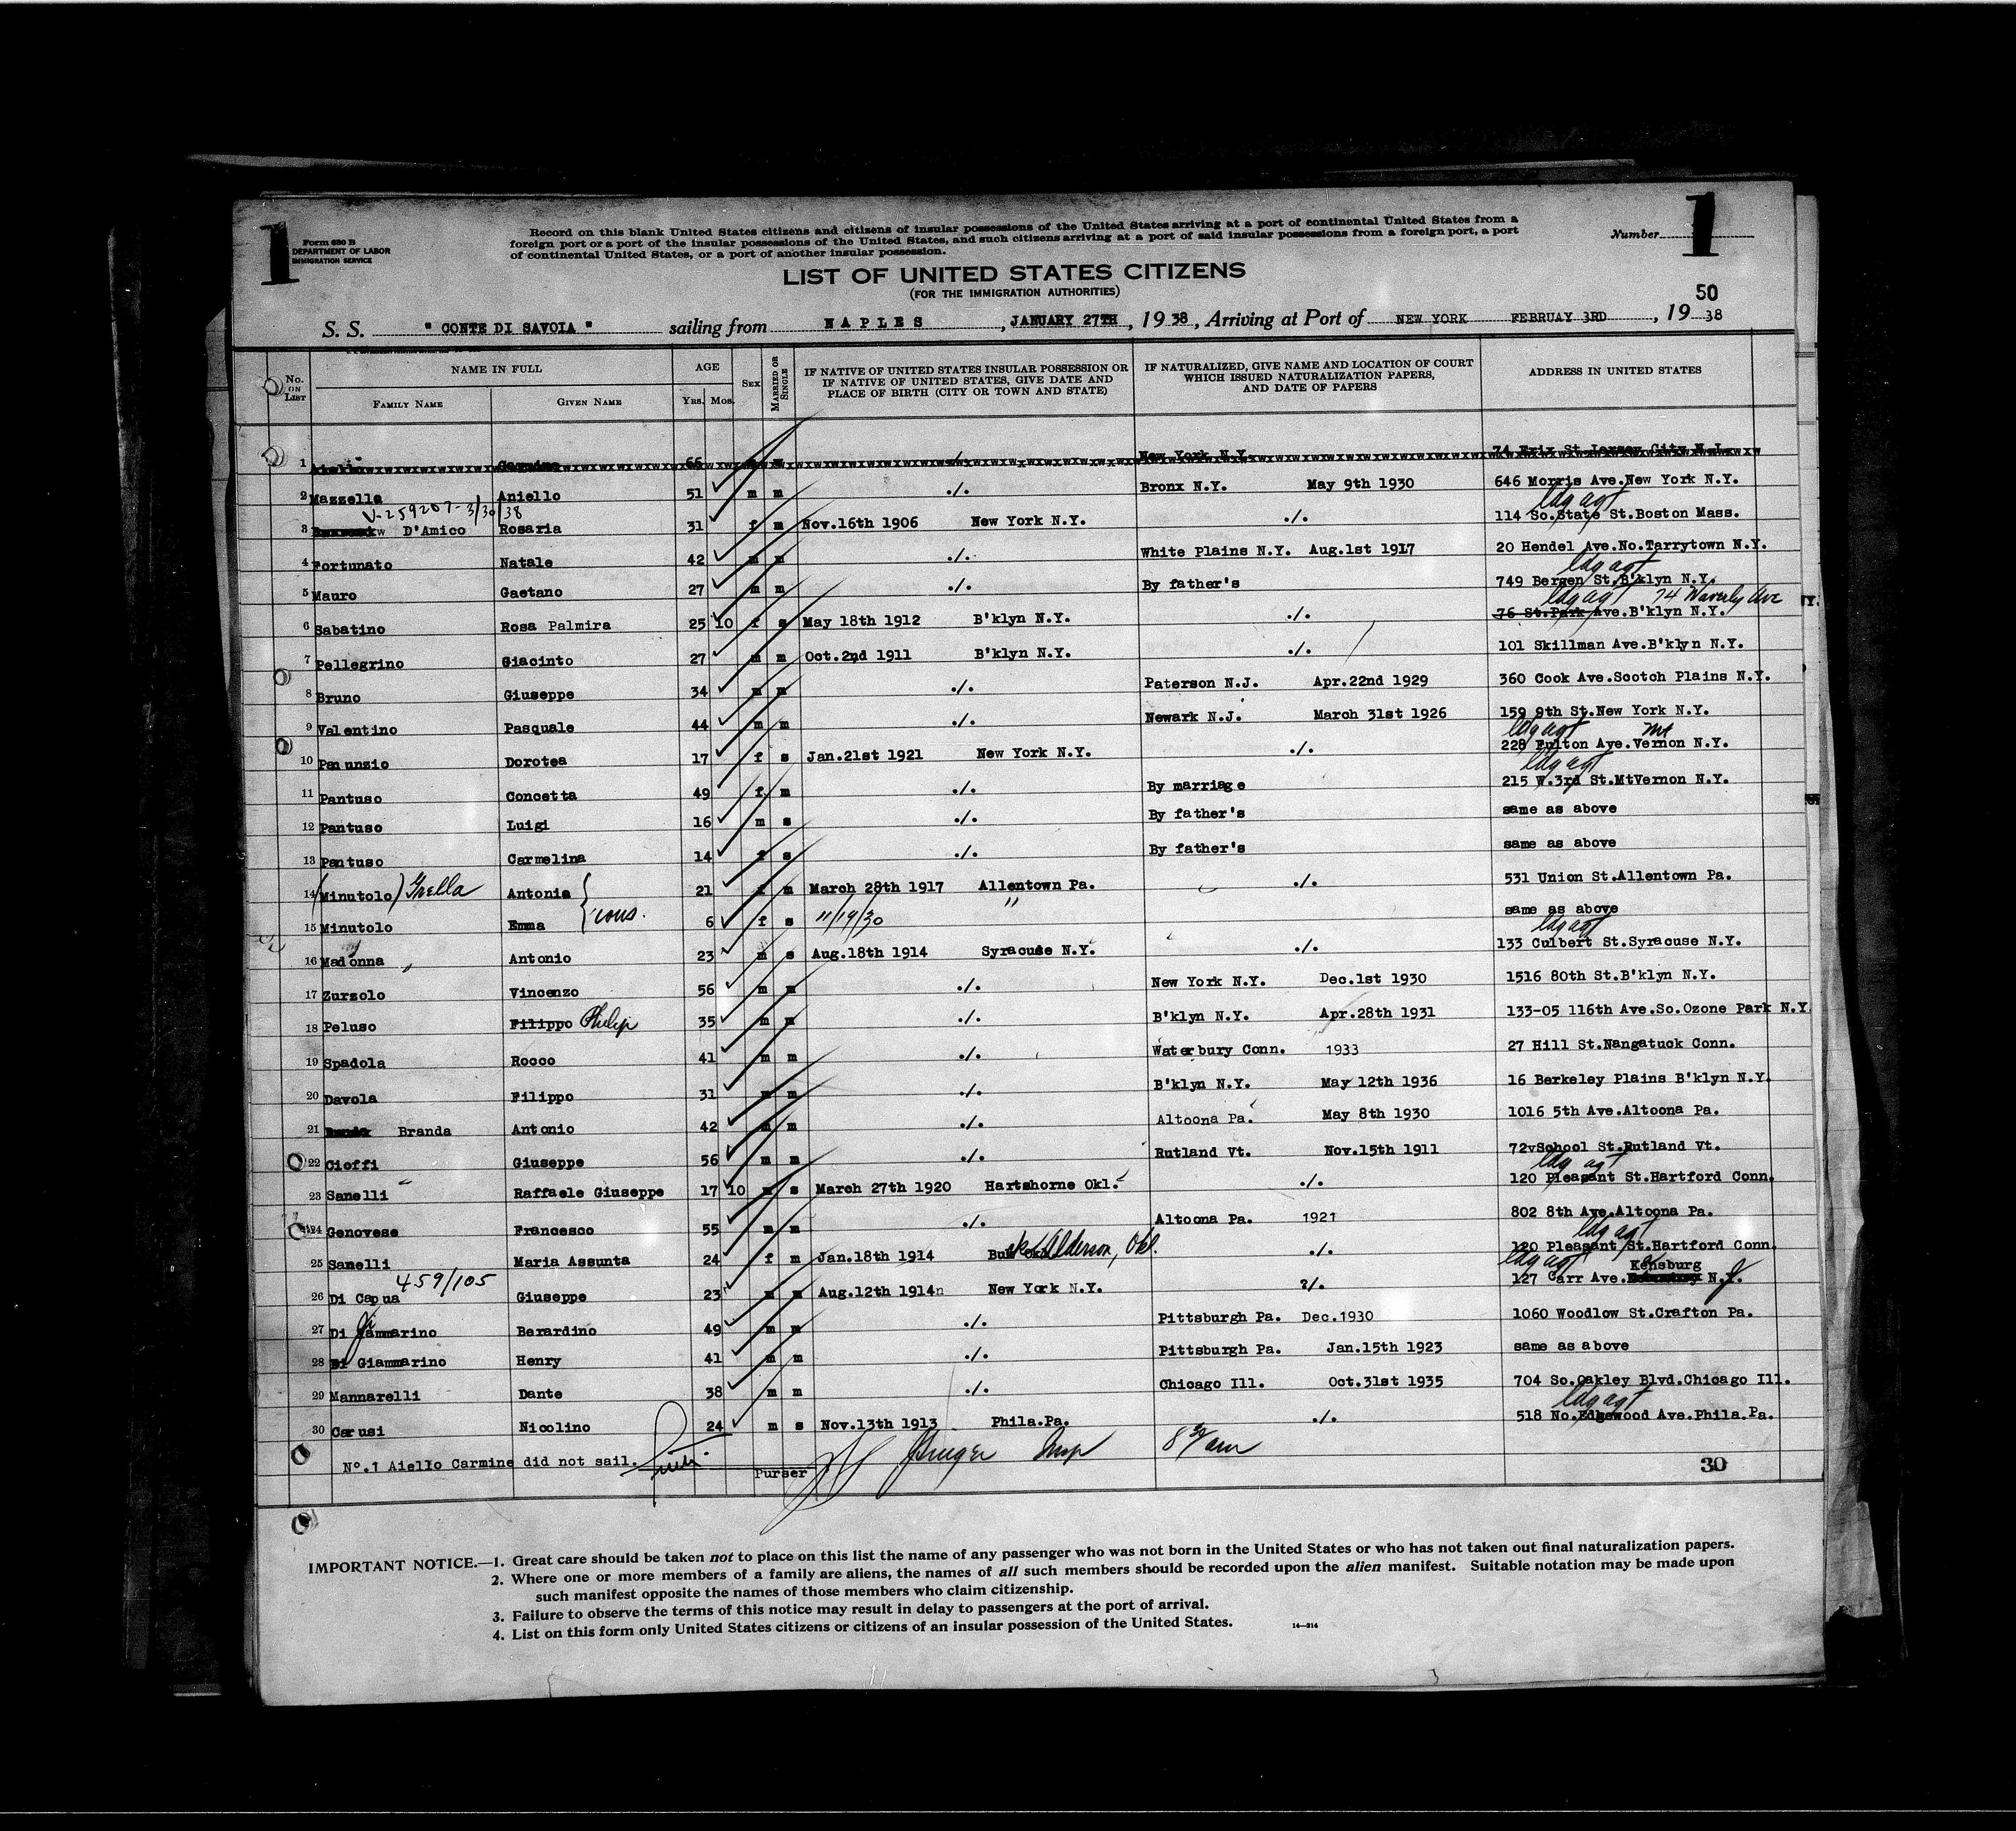 1 1
Form 630 B
DEPARTMENT OF LABOR
IMMIGRATION SERVICE
Record on this blank United States citizens and citizens of insular possessions of the United States arriving at a port of continental United States from a
foreign port or a port of the insular possessions of the United States, and such citizens arriving at a port of said insular possessions from a foreign port, a port
of continental United States, or a port of another insular possession.
Number
LIST OF UNITED STATES CITIZENS
(FOR THE IMMIGRATION AUTHORITIES)
50
S. S. " CONTE DI SAVOIA " sailing from NAPLES, JANUARY 27TH, 1938, Arriving at Port of NEW YORK FEBRUAY 3RD, 1938
No. ON LIST NAME IN FULL AGE SEX MARRIED OR SINGLE IF NATIVE OF UNITED STATES INSULAR POSSESSION OR IF NATIVE OF UNITED STATES, GIVE DATE AND PLACE OF BIRTH (CITY OR TOWN AND STATE) IF NATURALIZED, GIVE NAME AND LOCATION OF COURT WHICH ISSUED NATURALIZATION PAPERS, AND DATE OF PAPERS ADDRESS IN UNITED STATES
FAMILY NAME GIVEN NAME YRS. MOS.
1 Aiello Carmine 66 New York N.Y. 74 Erix St.Jersey City N.J.
2 Mazzella Aniello 51 m m ./. Bronx N.Y. May 9th 1930 646 Morris Ave.New York N.Y.
V-259207-3/30/38 ldg agt
3 D'Amico Rosaria 31 f m Nov.16th 1906 New York N.Y. ./. 114 So.State St.Boston Mass.
4 Fortunato Natale 42 m m ./. White Plains N.Y. Aug.1st 1917 20 Hendel Ave.No.Tarrytown N.Y.
ldg agt
5 Mauro Gaetano 27 m m ./. By father's 749 Bergen St.B'klyn N.Y.
ldg agt 74 Waverly Ave
6 Sabatino Rosa Palmira 25 10 f s May 18th 1912 B'klyn N.Y. ./. 76 St.Park Ave.B'klyn N.Y.
7 Pellegrino Giacinto 27 m m Oct.2nd 1911 B'klyn N.Y. ./. 101 Skillman Ave.B'klyn N.Y.
8 Bruno Giuseppe 34 m m ./. Paterson N.J. Apr.22nd 1929 360 Cook Ave.Scotch Plains N.Y.
9 Valentino Pasquale 44 m m ./. Newark N.J. March 31st 1926 159 9th St.New York N.Y.
ldg agt Mt
10 Panunzio Dorotea 17 f s Jan.21st 1921 New York N.Y. ./. 228 Fulton Aye.Vernon N.Y.
ldg agt
11 Pantuso Concetta 49 f m ./. By marriage 215 W.3rd St.MtVernon N.Y.
12 Pantuso Luigi 16 m s ./. By father's same as above
13 Pantuso Carmelina 14 f s ./. By father's same as above
14 (Minutolo) Grella Antonia 21 f m March 28th 1917 Allentown Pa. ./. 531 Union St.Allentown Pa.
cous.
15 Minutolo Emma 6 f s 11/19/30 " same as above
ldg agt
16 Madonna Antonio 23 m s Aug.18th 1914 Syracuse N.Y. ./. 133 Culbert St.Syracuse N.Y.
17 Zurzolo Vincenzo 56 m m ./. New York N.Y. Dec.1st 1930 1516 80th St.B'klyn N.Y.
18 Peluso Filippo Philip 35 m m ./. B'klyn N.Y. Apr.28th 1931 133-05 116th Ave.So.Ozone Park N.Y.
19 Spadola Rocco 41 m m ./. Waterbury Conn. 1933 27 Hill St.Nangatuck Conn.
20 Davola Filippo 31 m m ./. B'klyn N.Y. May 12th 1936 16 Berkeley Plains B'klyn N.Y.
21 Branda Antonio 42 m m ./. Altoona Pa. May 8th 1930 1016 5th Ave.Altoona Pa.
22 Cioffi Giuseppe 56 m m ./. Rutland Vt. Nov.15th 1911 72vSchool St.Rutland Vt.
ldg agt
23 Sanelli Raffaele Giuseppe 17 10 m s March 27th 1920 Hartshorne Okl. ./. 120 Pleasant St.Hartford Conn.
24 Genovese Francesco 55 m m ./. Altoona Pa. 1921 802 8th Ave.Altoona Pa.
ldg agt
25 Sanelli Maria Assunta 24 f m Jan.18th 1914 Alderson, Okl. ./. 120 Pleasant St.Hartford Conn.
459/105 ldg agt Kensburg
26 Di Capua Giuseppe 23 m m Aug.12th 1914n New York N.Y. ?/. 127 Carr Ave. N.J.
27 Di Giammarino Berardino 49 m m ./. Pittsburgh Pa. Dec.1930 1060 Woodlow St.Crafton Pa.
28 Di Giammarino Henry 41 m m ./. Pittsburgh Pa. Jan.15th 1923 same as above
29 Mannarelli Dante 38 m m ./. Chicago Ill. Oct.31st 1935 704 So.Oakley Blvd.Chicago Ill.
ldg agt
30 Carusi Nicolino 24 m s Nov.13th 1913 Phila.Pa. ./. 518 No.Edgewood Ave.Phila.Pa.
Nº.1 Aiello Carmine did not sail. Purser Insp 8 30/am 30
IMPORTANT NOTICE.—1. Great care should be taken not to place on this list the name of any passenger who was not born in the United States or who has not taken out final naturalization papers.
2. Where one or more members of a family are aliens, the names of all such members should be recorded upon the alien manifest. Suitable notation may be made upon
such manifest opposite the names of those members who claim citizenship.
3. Failure to observe the terms of this notice may result in delay to passengers at the port of arrival.
4. List on this form only United States citizens or citizens of an insular possession of the United States. 14—314